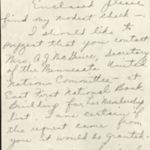 Enclosed please
find my modest check —
I should like to
suggest that you contact
Mrs. A J McGuire, Secretary
of the Minnesota United
Nations Committee — at
First National Bank
Building for her Mailing
list. I am certain if
the request came from
you it would be granted.